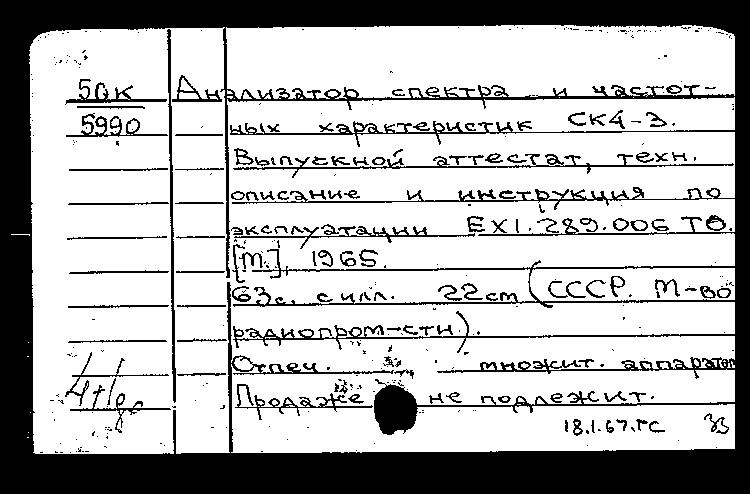 50к Анализатор спектра и частот-
5990 ных характеристик СК4-3.
Выпускной аттестат, техн.
описание и инструкция по
эксплуатации ЕХ1.289.006 ТО.
[М.], 1965.
63с. с илл. 22см (СССР. М-во
радиопром-сти).
Отпеч. множит. аппаратом
Продаже не подлежит.
18.1.67.ГС